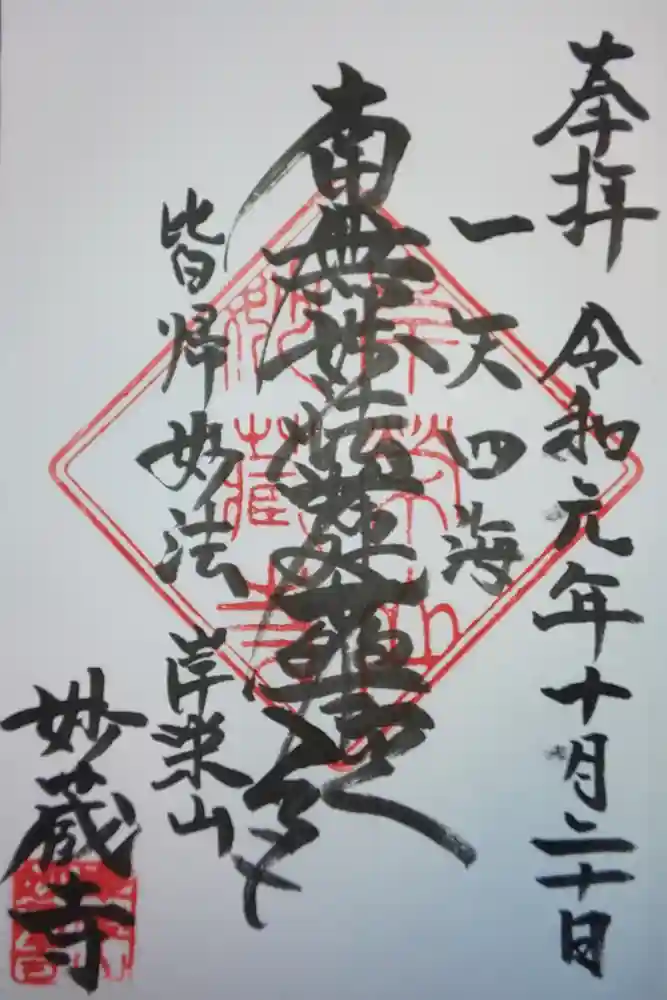 奉拝 令和元年十月二十日
一天四海
南無妙法蓮華経
皆帰妙法 岸栄山
妙蔵寺